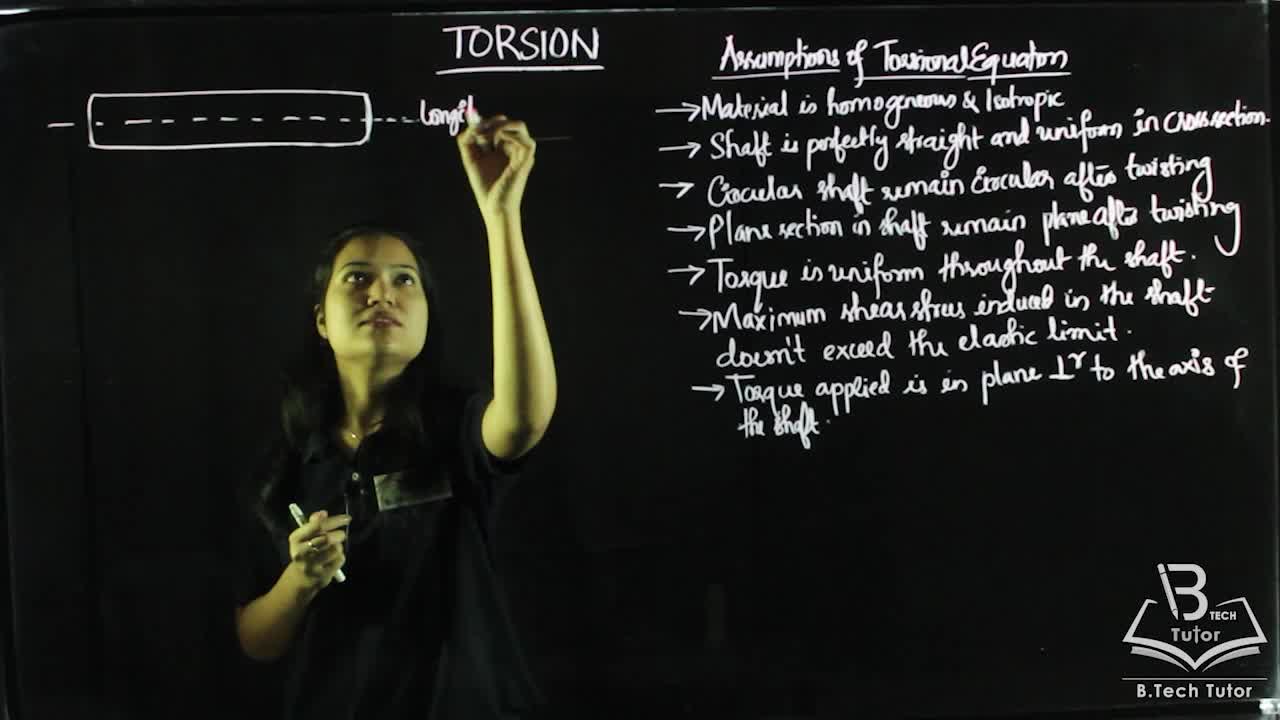 TORSION
Longit
Assumptions of Torsional Equation
→ Material is homogeneous & Isotropic
→ Shaft is perfectly straight and uniform in cross section.
→ Circular shaft remain circular after twisting
→ Plane section in shaft remain plane after twisting
→ Torque is uniform throughout the shaft.
→ Maximum shear stress induced in the shaft
doesn't exceed the elastic limit.
→ Torque applied is in plane ⊥r to the axis of
the shaft.
B TECH
Tutor
B.Tech Tutor